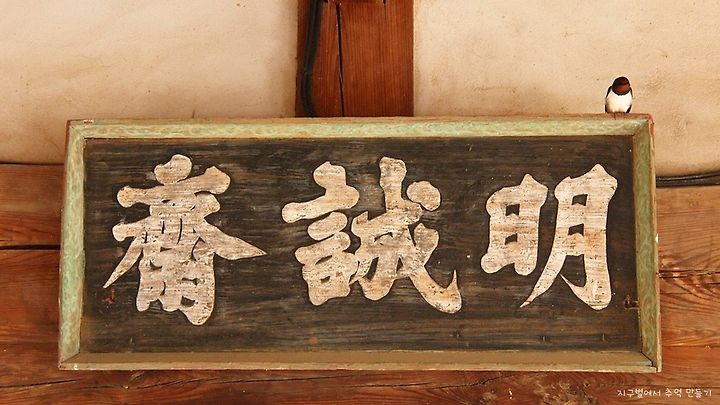 明誠齋
지구별에서 추억 만들기